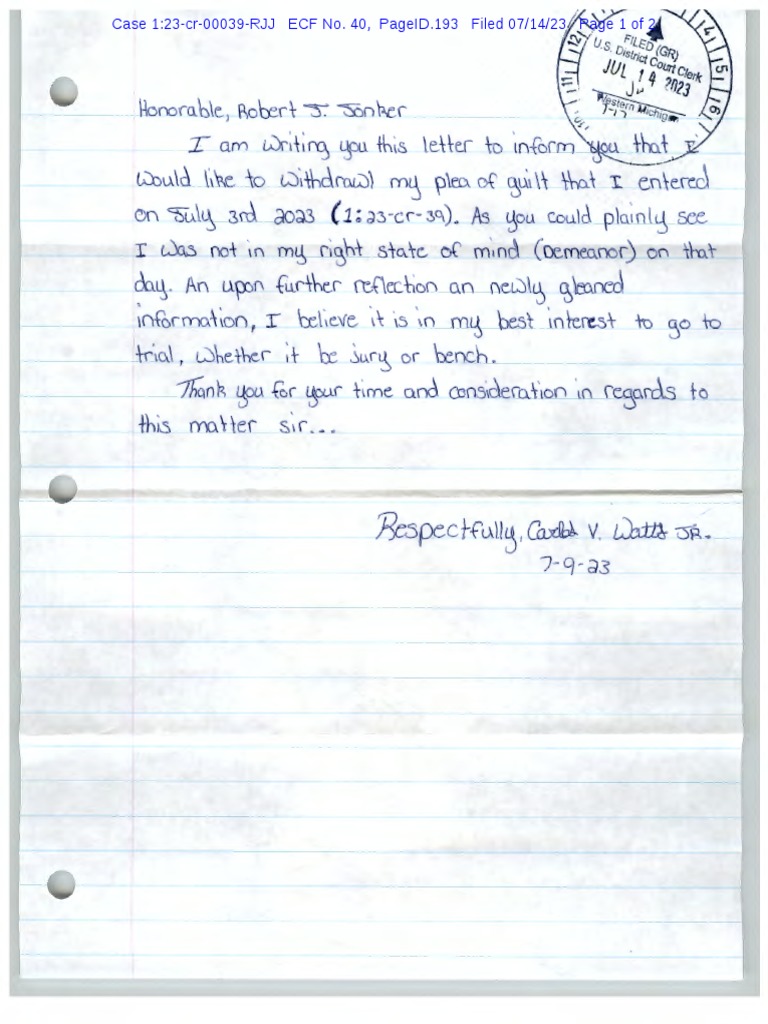 Case 1:23-cr-00039-RJJ ECF No. 40, PageID.193 Filed 07/14/23 Page 1 of 2
FILED (GR)
U.S. District Court Clerk
JUL 14 2023
Western Michigan
11 12 14 15 16
Honorable, Robert J. Jonker
I am writing you this letter to inform you that I
would like to withdrawl my plea of guilt that I entered
on July 3rd 2023 (1:23-cr-39). As you could plainly see
I was not in my right state of mind (Demeanor) on that
day. An upon further reflection an newly gleaned
information, I believe it is in my best interest to go to
trial, whether it be jury or bench.
Thank you for your time and consideration in regards to
this matter sir...
Respectfully, V. Watts JR.
7-9-23